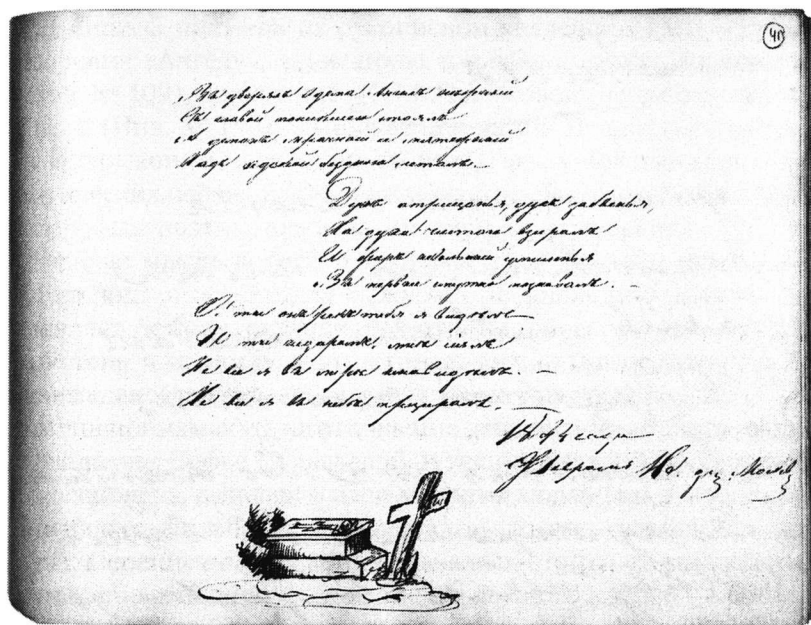 Въ дверяхъ Эдема Ангелъ нѣжный
Съ главой поникшею стоялъ
А демонъ мрачный и мятежный
Надъ адской бездною леталъ —
Духъ отрицанья, духъ забвенья,
На духа чистаго взиралъ
И жаръ невольный умиленья
Въ первые смутно познавалъ. —
онъ рекъ тебя я видѣлъ
И ты недаромъ мнѣ сіялъ
Не все я въ мірѣ ненавидѣлъ.
Не все я въ небѣ презиралъ.
Февраля